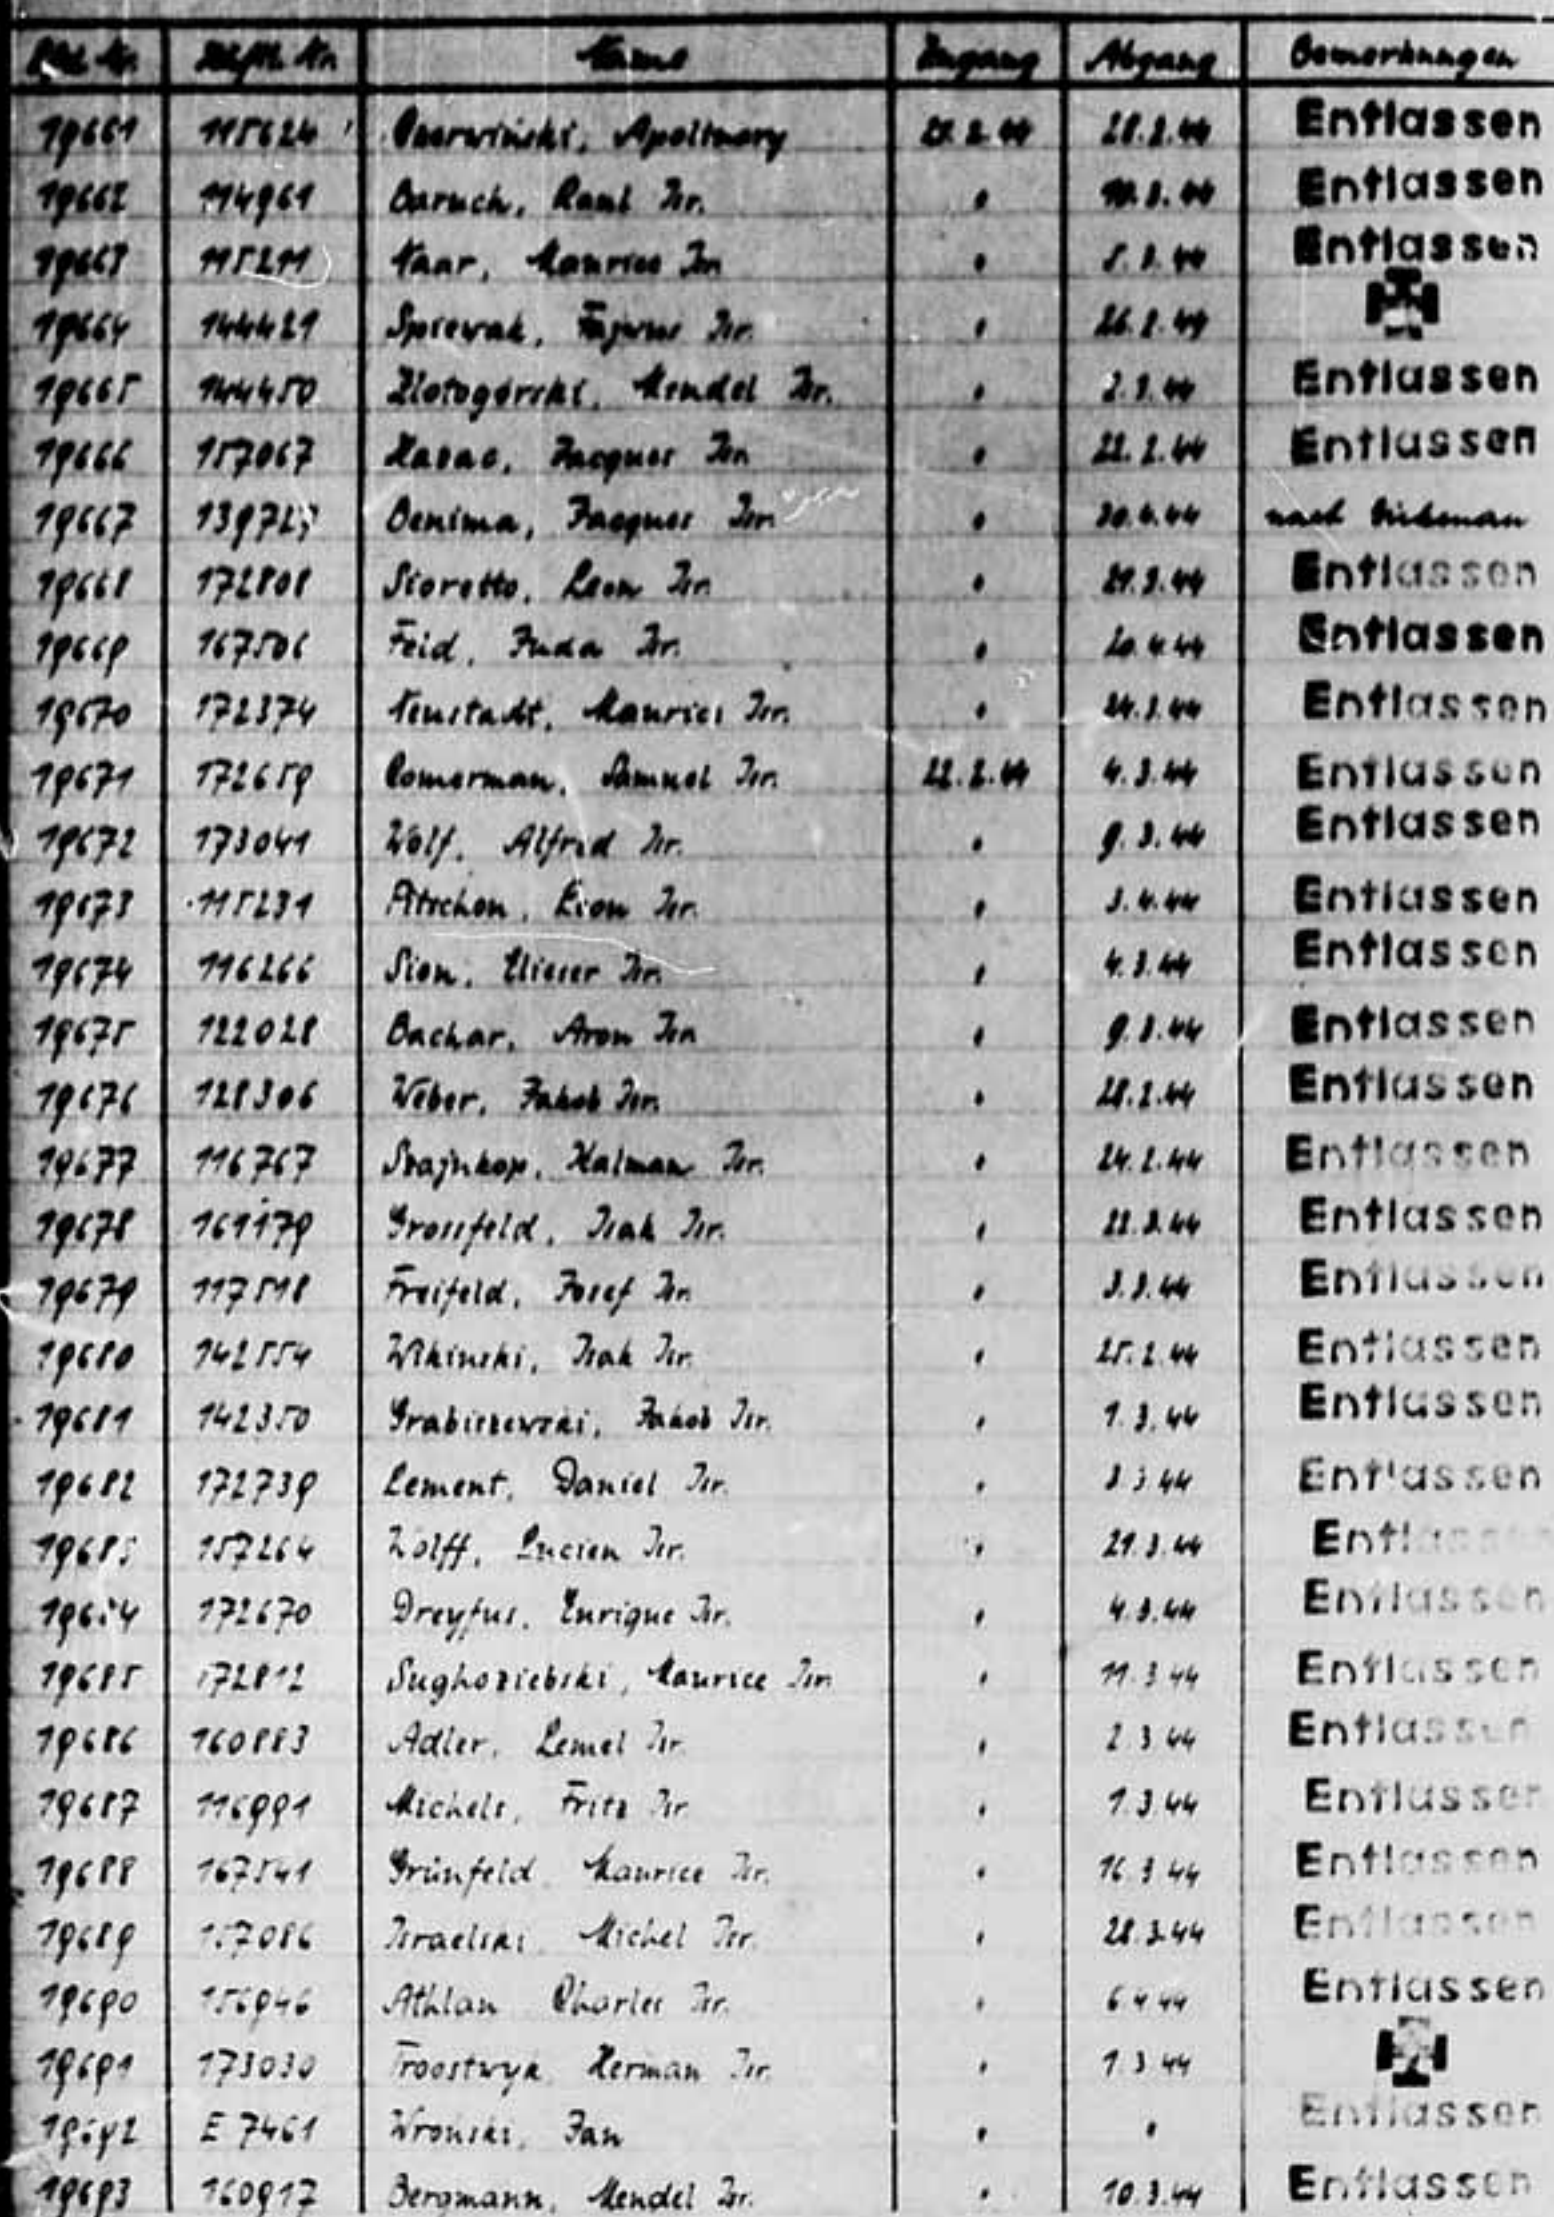 Lfd. Nr. Häftl. Nr. Name Zugang Abgang Bemerkungen
19661 115624 Czerwiński, Apolinary 21.2.44 28.2.44 Entlassen
19662 114961 Baruch, Raul Isr. " Entlassen
19663 115211 Naar, Maurice Isr. " Entlassen
19664 144421 Spiewak, Isr. " 26.2.44
19665 144450 Zlotogórski, Mendel Isr. " 2.3.44 Entlassen
19666 157067 Jacques Isr. " 22.2.44 Entlassen
19667 Benima, Jacques Isr. " 20.4.44 nach Birkenau
19668 172808 Sioretto, Leon Isr. " 21.3.44 Entlassen
19669 167506 Feid, Juda Isr. " 20.4.44 Entlassen
19670 172374 Neustadt, Maurice Isr. " 24.3.44 Entlassen
19671 172659 Comerman, Samuel Isr. 22.2.44 4.3.44 Entlassen
19672 173041 Wolf, Alfred Isr. " 9.3.44 Entlassen
19673 115231 Pitschon, Leon Isr. " 3.4.44 Entlassen
19674 116266 Sion, Elieser Isr. " 4.3.44 Entlassen
19675 122028 Bachar, Aron Isr. " 9.3.44 Entlassen
19676 128306 Weber, Jakob Isr. " 28.2.44 Entlassen
19677 116767 Szajnkop, Kalman Isr. " 24.2.44 Entlassen
19678 161179 Grossfeld, Isak Isr. " 22.3.44 Entlassen
19679 117518 Freifeld, Josef Isr. " 3.3.44 Entlassen
19680 142554 Wikinski, Isak Isr. " 25.2.44 Entlassen
19681 142350 Grabiszewski, Jakob Isr. " 1.3.44 Entlassen
19682 172739 Lement, Daniel Isr. " 3.3.44 Entlassen
19683 157264 Wolff, Lucien Isr. " 21.3.44 Entlassen
19684 172670 Dreyfus, Enrique Isr. " 4.3.44 Entlassen
19685 172812 Sughoziebski, Maurice Isr. " 11.3.44 Entlassen
19686 160883 Adler, Lemel Isr. " 2.3.44 Entlassen
19687 116991 Michels, Fritz Isr. " 1.3.44 Entlassen
19688 167541 Grünfeld, Maurice Isr. " 16.3.44 Entlassen
19689 157086 Israelski, Michel Isr. " 28.3.44 Entlassen
19690 156946 Athlan, Charles Isr. " 6.4.44 Entlassen
19691 173030 Troostwyk, Herman Isr. " 1.3.44
19692 E 7461 Wronski, Jan " " Entlassen
19693 160917 Bergmann, Mendel Isr. " 10.3.44 Entlassen